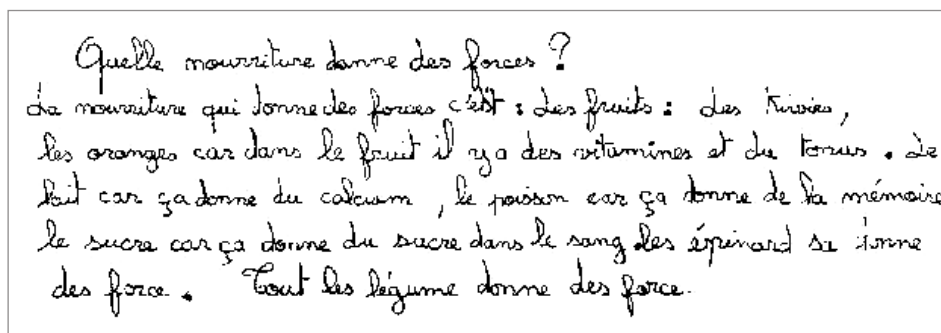 Quelle nourriture donne des forces ?
La nourriture qui donne des forces c'est : des fruits : des kiwies,
les oranges car dans le fruit il y a des vitamines et du tonus. Le
lait car ça donne du calcium, le poisson car ça donne de la mémoire
le sucre car ça donne du sucre dans le sang. les épinard sa donne
des force. Tout les légume donne des force.